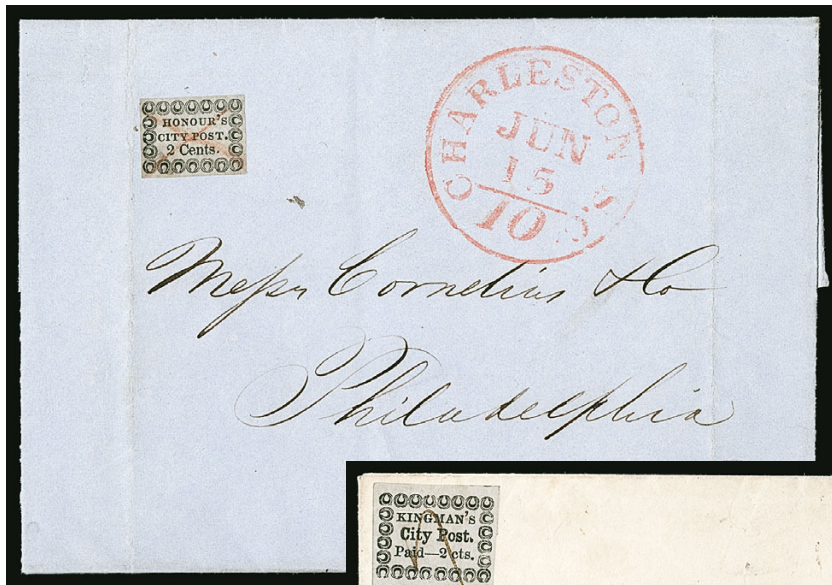 HONOUR'S
CITY POST.
2 Cents.
CHARLESTON S.C.
JUN
15
10
Messrs Cornelius & Co
Philadelphia
KINGMAN'S
City Post.
Paid—2 cts.